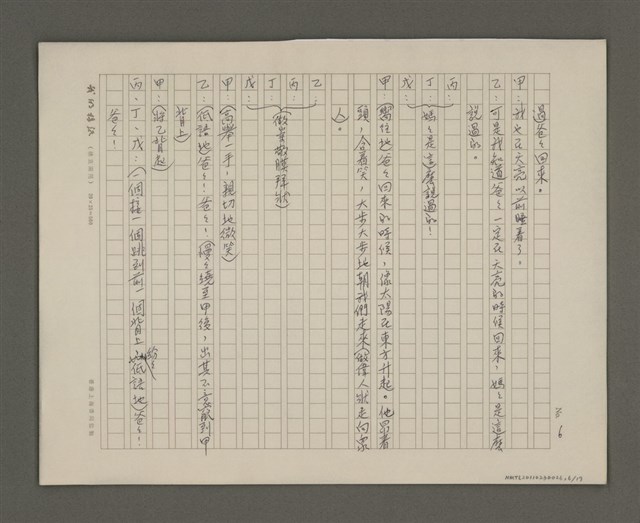 過爸々回來。
甲：我也在天亮以前睡着了。
乙：可是我知道爸々一定在天亮的時候回來，媽々是這麼
說過的。
丙：
丁：媽々是這麼說過的！
戊：
甲：爸々回來的時候，像太陽在東方升起。他昂着
頭，含着笑，大步大步地朝我們走來（做偉人狀走向眾
人。
乙：
丙：
丁：（做崇敬膜拜狀）
戊：
甲：（高舉一手，親切地微笑）
乙：（低語地）爸々！爸々！（慢々繞至甲後，出其不意跳到甲
背上）
甲：（將乙背起）
丙、丁、戊：（一個接一個跳到前一個背上，低語地）爸々！
爸々！